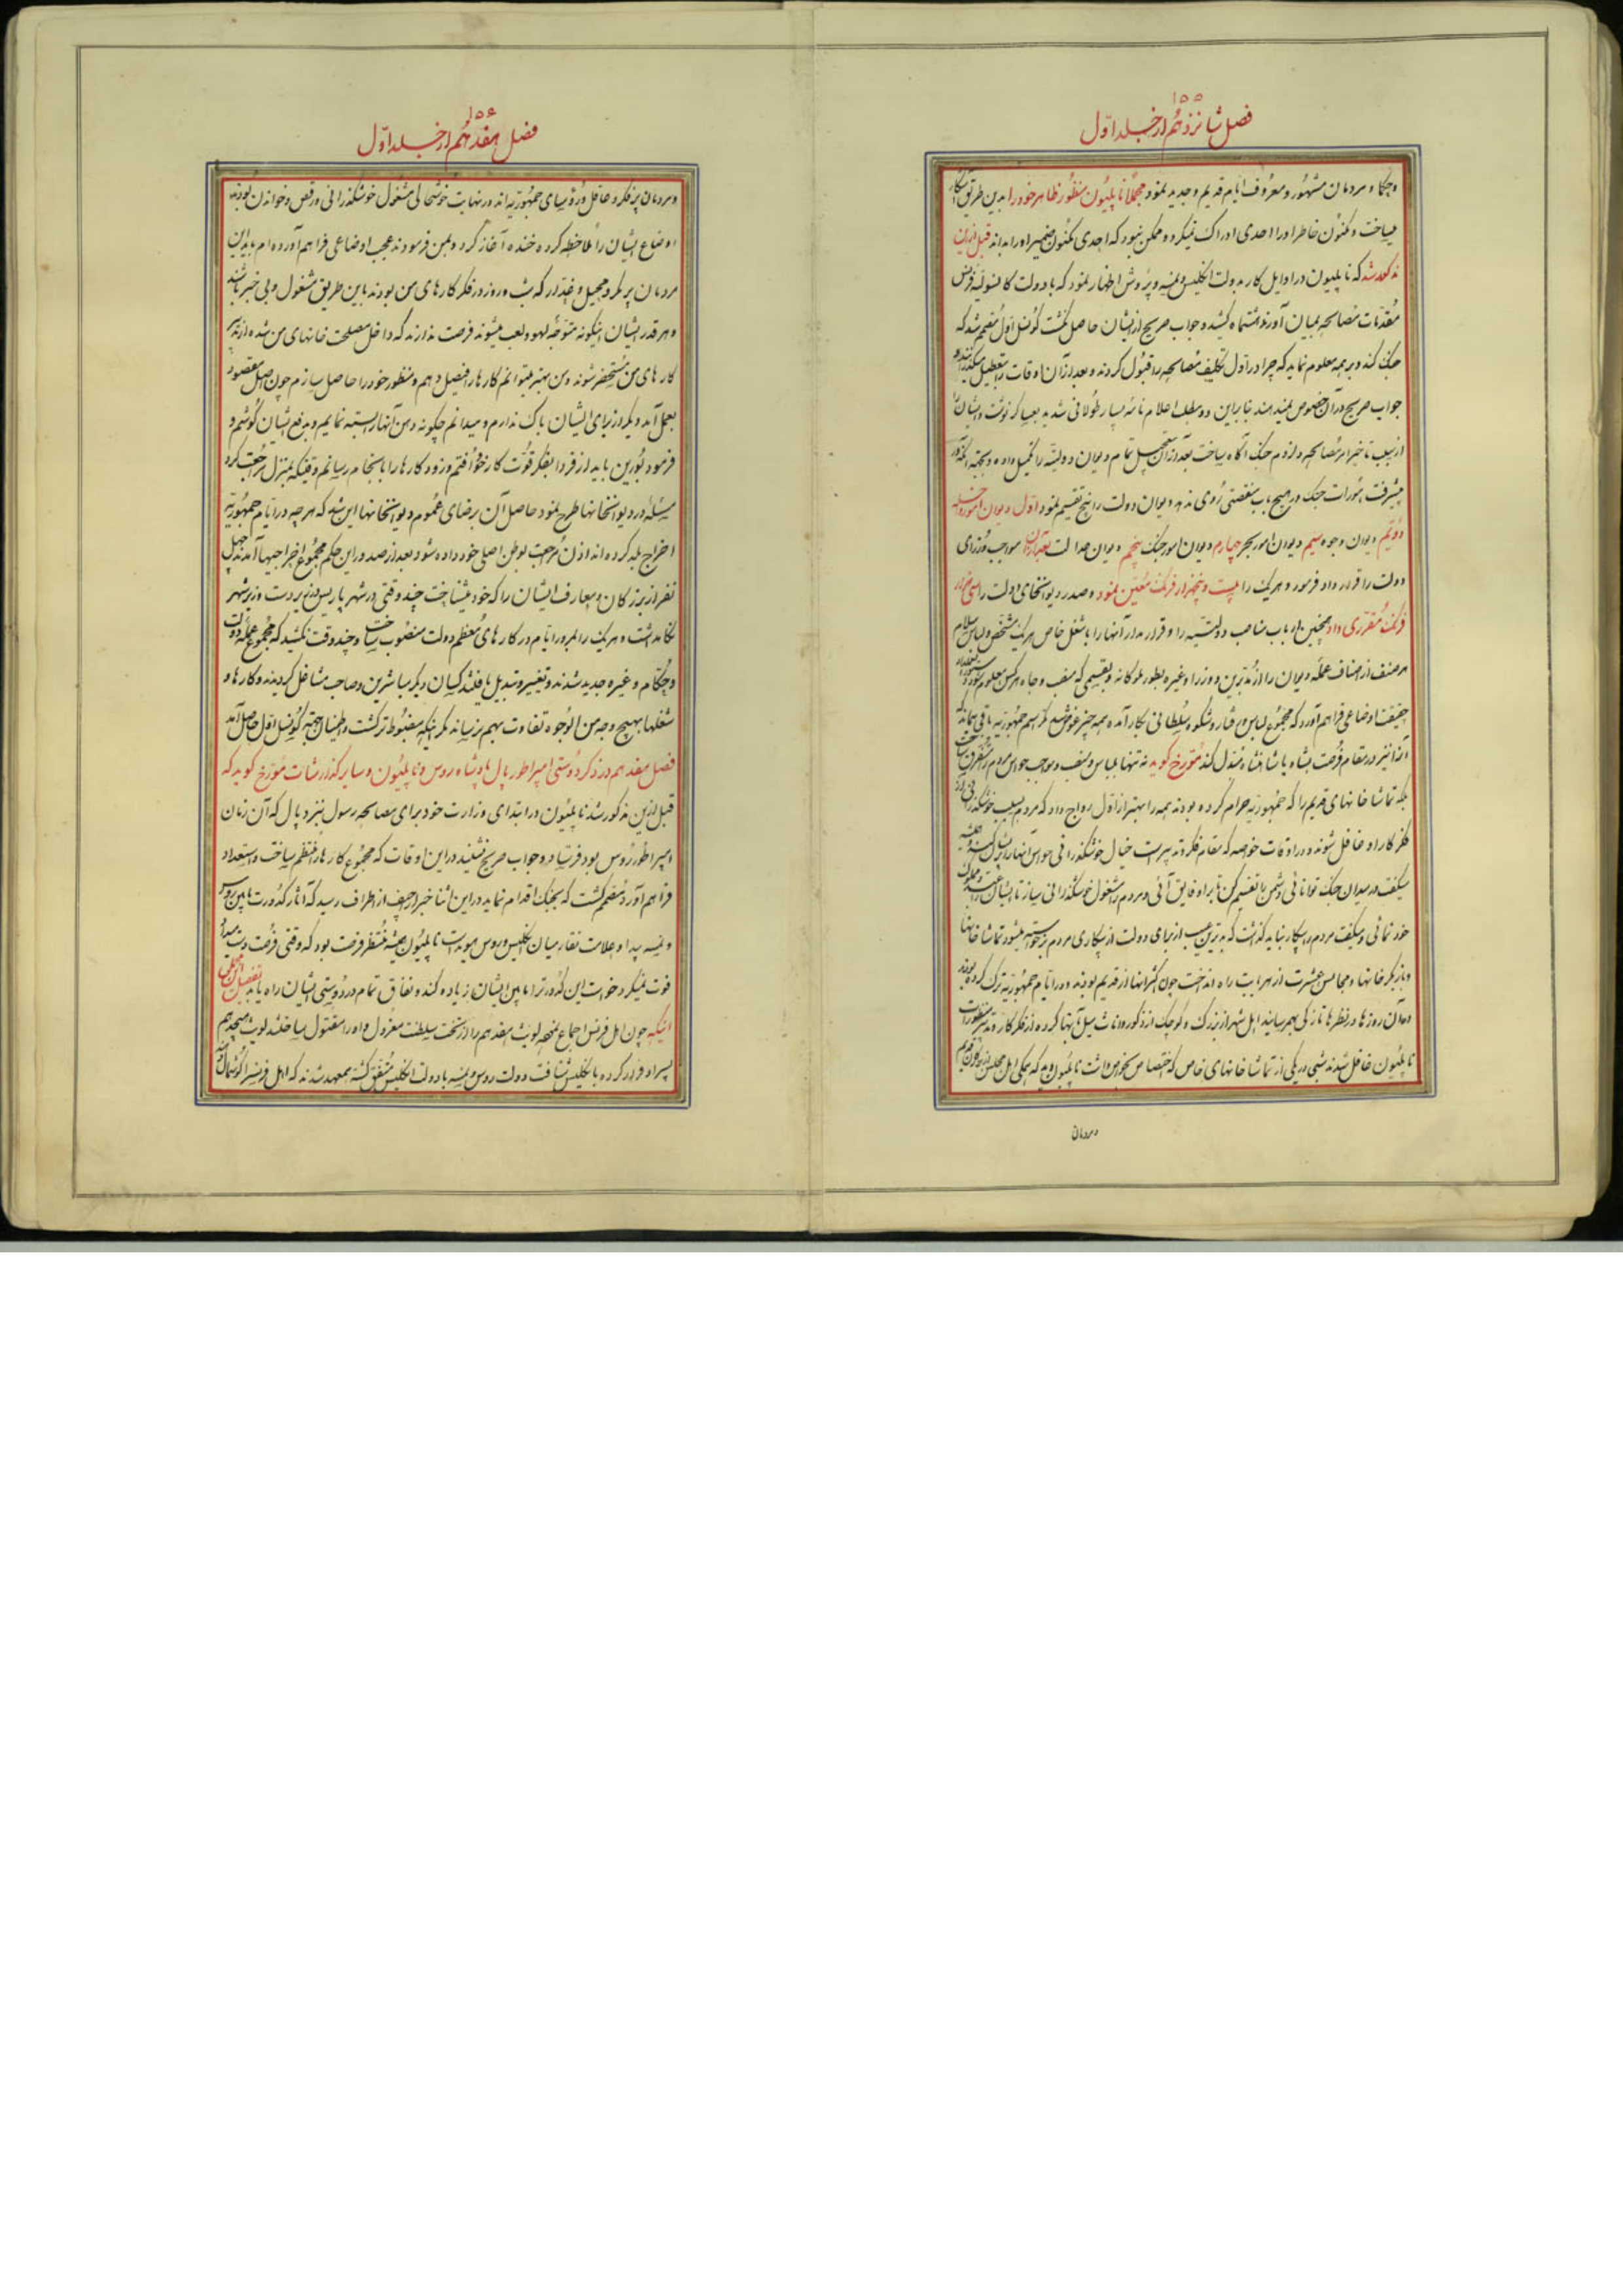 ۱۵۵
فصل شانزدهم از جلد اول
و حکما و مردمان مشهور و معروف ایام قدیم و جدید نمود مجملا ناپلیون منظور ظاهر خود را بدین طریق آشکار
میساخت و مکنون خاطر او را احدی ادراک نمیکرد و ممکن نبود که احدی مکنون ضمیر او را بداند قبل ازین
مذکور شد که ناپلیون در اوایل کار بدولت انگلیس و نمسه و پروش اظهار نمود که با دولت کانسولیه فرنس
مقدمات مصالحه بمیان آورند کشید و جواب صریح از ایشان حاصل نگشت کونسل اول مصمم شد که
جنگ کند و بر همه معلوم نماید که چرا در اول تکلیف مصالحه را قبول کردند و بعد از آن اوقات را بتعطیل میگذرانند و
جواب صریح در آن خصوص نمیدهند بنابراین دو مطلب اعلام نامه بسیار طولانی شدید بعساکر نوشت و ایشان را
از سبب تاخیر امر مصالحه و لزوم جنگ آگاه ساخت بعد از آن تمام دیوان دولتیه را تکمیل داده و بجهة آنکه در
پیشرفت امورات جنگ در هیچ باب منقصتی روی ندهد دیوان دولت را پنج تقسیم نمود اول دیوان امور داخله
دویم دیوان وجوه سیم دیوان امور بحر چهارم دیوان امور جنگ پنجم دیوان عدالت بعد از آن مواجب وزرای
دولت را قرار داد فرمود و هر یک را بیست و پنجهزار فرنک معین نمود و صدر دیوانخانهای دولت را سی هزار
فرنک مقرری داد همچنین ارباب مناصب دولتیه را و قرار مدار آنها را با شغل خاص هر یک مشخص و لباس
هر صنف از اصناف عمله دیوان را از نزدیکترین وزرا و غیره بطور ملوکانه و بقسمی که منصب و جاه هر کس معلوم شود
حقیقت اوضاعی فراهم آورد که مجموع لباس و رفتار و شکوه سلطانی بکار آمد و همه چیز عوض شد مگر اسم جمهوریه باقی بماند که
آنرا نیز در مقام فرصت بشاه یا شاهنشاه مبدل کند مورخ گوید نه تنها بلباس و منصب و مواجب حواس مردم را متفرق ساخت
بلکه تماشاخانهای قدیم را که جمهوریه حرام کرده بودند همه را بهتر از اول رواج داد که مردم بسبب خوشگذرانی از
فکر کار او غافل شوند و در اوقات خواصه که مقام فکر و تدبیر است خیال خوشگذرانی حواس آنها را پریشان کند
میگفت در میدان جنگ توانائی دشمن را تقسیم کن تا بر او فایق آئی و مردم را مشغول خوشگذرانی ساز تا ایشان
خود نمائی و میگفت مردم را بیکار نباید گذاشت که بدترین عیب از برای دولت از بیکاری مردم برخواسته میشود تماشاخانها
و بازیگرخانها و مجالس عشرت از هر بابت راه انداخت چون اکثر آنها از قدیم بودند و در ایام جمهوریه ترک کرده بودند
و در آن روزها در نظرها تازگی بهم رسانید اهل شهر از بزرگ و کوچک از ذکور و اناث میل بآنها کرده از فکر کار و تدبیر منظورات
ناپلیون غافل شدند شبی در یکی از تماشاخانهای خاص که اختصاص بخواص داشت ناپلیون دید که جملگی اهل مجلس
و مردمان
۱۵۶
فصل هفدهم از جلد اول
و مردمان پر فکر و عاقل و رؤسای جمهوریه اند در نهایت خوشحالی مشغول خوشگذرانی و رقص و خواندن بودند
اوضاع ایشان را ملاحظه کرده خنده آغاز کرد و بمن فرمودند عجب اوضاعی فراهم آورده ام باید این
مردمان پر مکر و حیل و غدار که شب و روز در فکر کارهای من بودند باین طریق مشغول و بی خبر باشند
و هر قدر ایشان اینگونه متوجه لهو و لعب میشوند فرصت ندارند که داخل مصلحت خانهای من شده از تدبیر
کارهای من مستحضر شوند و من بهتر میتوانم کارها را فیصل دهم و منظور خود را حاصل سازم چون اصل مقصود
بعمل آمد دیگر از برای ایشان باک ندارم و میدانم چگونه دهن آنها را بسته نمایم و بدفع ایشان کوشم و
فرمود بورین باید از فردا بفکر قوت کار خود افتم و زود کارها را بانجام رسانم وقتیکه بمنزل مراجعت کرد
مسئله در دیوانخانها طرح نمود حاصل آن برضای عموم دیوانخانها این شد که هر چه در ایام جمهوریه
اخراج بلد کرده اند اذن مراجعت بوطن اصلی خود داده شود بعد از صدور این حکم مجموع اخراجیها آمدند چهل
نفر از بزرگان و معارف ایشان را که خود میشناخت چند وقتی در شهر پاریس در زیر دست وزیر شهر
نگاهداشت و هر یک را بمرور ایام در کارهای معظم دولت منصوب ساخت و چند وقت نکشید که مجموع عمله دولت
و حکام و غیره جدید شدند و تغییر و تبدیل یافتند کسان دیگر مباشرین و صاحب مشاغل گردیدند و کارها و
شغلها بهیچ وجه من الوجوه تفاوت بهم نرسانید مگر اینکه مضبوط تر گشت و اطمینان بجهة کونسل اول حاصل آمد
فصل هفدهم در ذکر دوستی امپراطور پال پادشاه روس و ناپلیون و سایر گذارشات مورخ گوید که
قبل ازین مذکور شد ناپلیون در ابتدای وزارت خود برای مصالحه رسول بنزد پال که آن زمان
امپراطور روس بود فرستاد و جواب صریح نشنید در این اوقات که مجموع کارها را منتظم ساخت و استعداد
فراهم آورد و مصمم گشت که بجنگ اقدام نماید در این اثنا خبر اراجیف از اطراف رسید که آثار کدورت مابین روس
و نمسه پیدا و علامت نقار میان انگلیس و روس هویداست ناپلیون همیشه منتظر فرصت بود که وقتی فرصت دست میداد
فوت نمیکرد خواست این کدورت را مابین ایشان زیاده کند و نفاق تمام در دوستی ایشان راه یابد تفصیل این مجمل
اینکه چون اهل فرنس اجماع نموده لویت هفدهم را از تخت سلطنت معزول و او را مقتول ساختند لویت هیجدهم
پسر او فرار کرده بانگلیس شتافت دولت روس و نمسه با دولت انگلیس متفق گشته معهد شدند که اهل فرنس را گوشمال